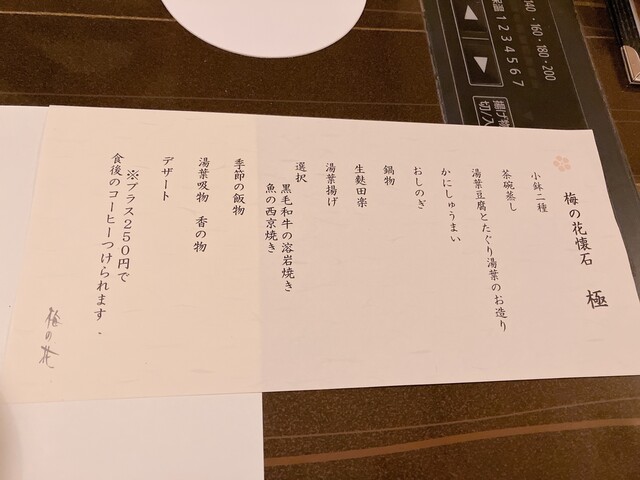 梅の花懐石　極
小鉢二種
茶碗蒸し
湯葉豆腐とたぐり湯葉のお造り
かにしゅうまい
おしのぎ
鍋物
生麩田楽
湯葉揚げ
選択
黒毛和牛の溶岩焼き
魚の西京焼き
季節の飯物
湯葉吸物　香の物
デザート
※プラス２５０円で
食後のコーヒーつけられます.
梅の花
140・160・180・200
1 2 3 4 5 6 7
揚げ物
切/入